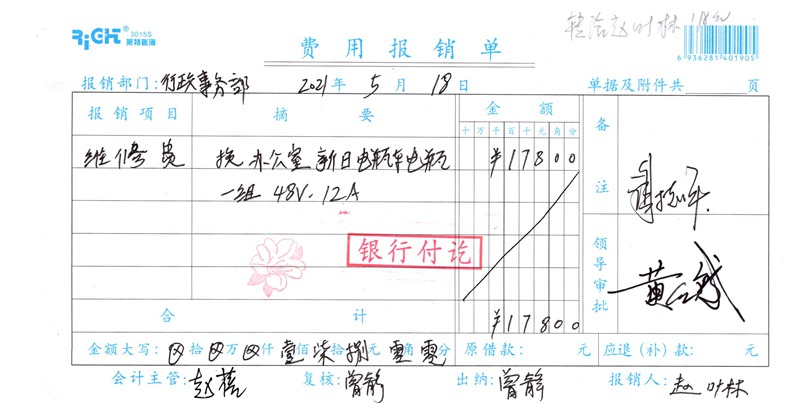 RiCH 3015S 莱特账簿
转给赵叶林
费用报销单
6 936281 401905
报销部门：行政事务部 2021年 5 月 18 日 单据及附件共 页
报销项目 摘要 金额 备注
十 万 千 百 十 元 角 分
维修费 换办公室新日电瓶车电瓶 ¥17800
一组 48V.12A
银行付讫
领导审批
合计 ¥17800
金额大写：⊗拾⊗万⊗仟壹佰柒拾捌元零角零分 原借款： 元 应退（补）款： 元
会计主管：赵蓓 复核：曾静 出纳：曾静 报销人：赵叶林